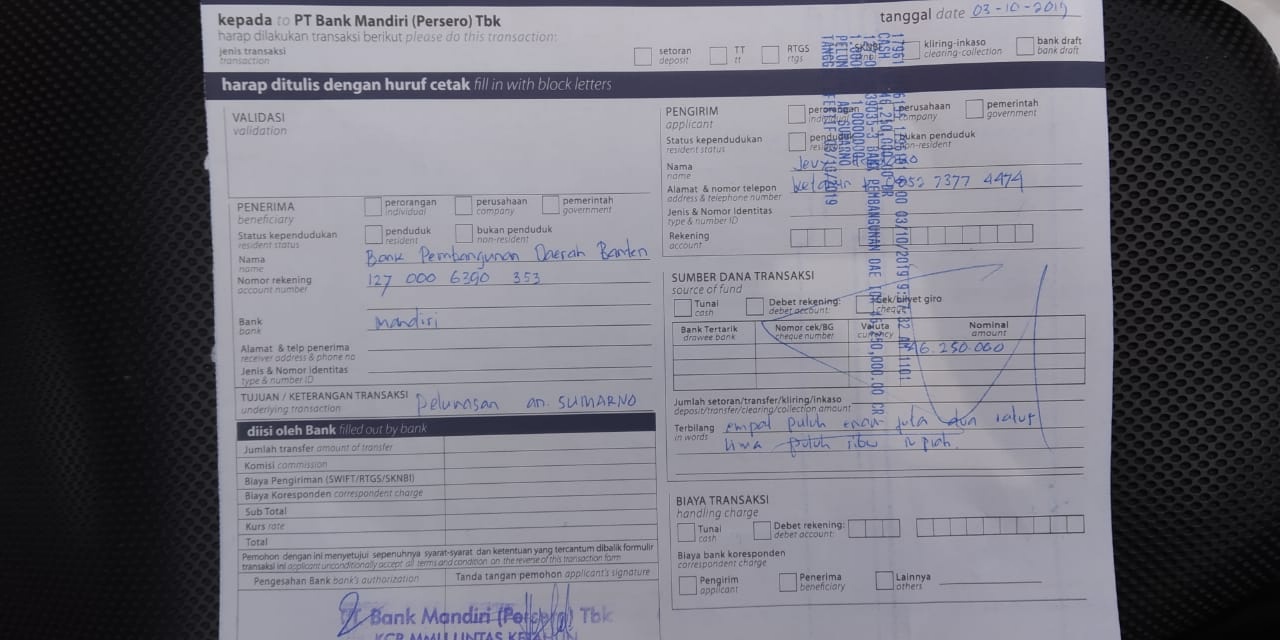 kepada to PT Bank Mandiri (Persero) Tbk
tanggal date 03-10-2019
harap dilakukan transaksi berikut please do this transaction:
jenis transaksi
transaction
setoran
deposit
TT
tt
RTGS
rtgs
SKNBI
kliring-inkaso
clearing-collection
bank draft
bank draft
harap ditulis dengan huruf cetak fill in with block letters
VALIDASI
validation
PENERIMA
beneficiary
perorangan
individual
perusahaan
company
pemerintah
government
Status kependudukan
resident status
penduduk
resident
bukan penduduk
non-resident
Nama
name
Bank Pembangunan Daerah Banten
Nomor rekening
account number
127 000 6390 353
Bank
bank
mandiri
Alamat & telp penerima
receiver address & phone no
Jenis & Nomor Identitas
type & number ID
TUJUAN / KETERANGAN TRANSAKSI
underlying transaction
pelunasan an. SUMARNO
diisi oleh Bank filled out by bank
Jumlah transfer amount of transfer
Komisi commission
Biaya Pengiriman (SWIFT/RTGS/SKNBI)
Biaya Koresponden correspondent charge
Sub Total
Kurs rate
Total
Pemohon dengan ini menyetujui sepenuhnya syarat-syarat dan ketentuan yang tercantum dibalik formulir
transaksi ini applicant unconditionally accept all terms and condition on the reverse of this transaction form
Pengesahan Bank bank's authorization
Tanda tangan pemohon applicant's signature
Bank Mandiri (Persero) Tbk
PENGIRIM
applicant
perorangan
individual
perusahaan
company
pemerintah
government
Status kependudukan
resident status
penduduk
resident
bukan penduduk
non-resident
Nama
name
Alamat & nomor telepon
address & telephone number
0852 7377 4474
Jenis & Nomor Identitas
type & number ID
Rekening
account
SUMBER DANA TRANSAKSI
source of fund
Tunai
cash
Debet rekening:
debet account:
Cek/bilyet giro
cheque
Bank Tertarik
drawee bank
Nomor cek/BG
cheque number
Valuta
currency
Nominal
amount
46.250.000
Jumlah setoran/transfer/kliring/inkaso
deposit/transfer/clearing/collection amount
Terbilang
in words
empat puluh enam juta dua ratus
lima puluh ribu rupiah.
BIAYA TRANSAKSI
handling charge
Tunai
cash
Debet rekening:
debet account:
Biaya bank koresponden
correspondent charge
Pengirim
applicant
Penerima
beneficiary
Lainnya
others
03/10/2019
CASH
BANK PEMBANGUNAN DAE
SUMARNO